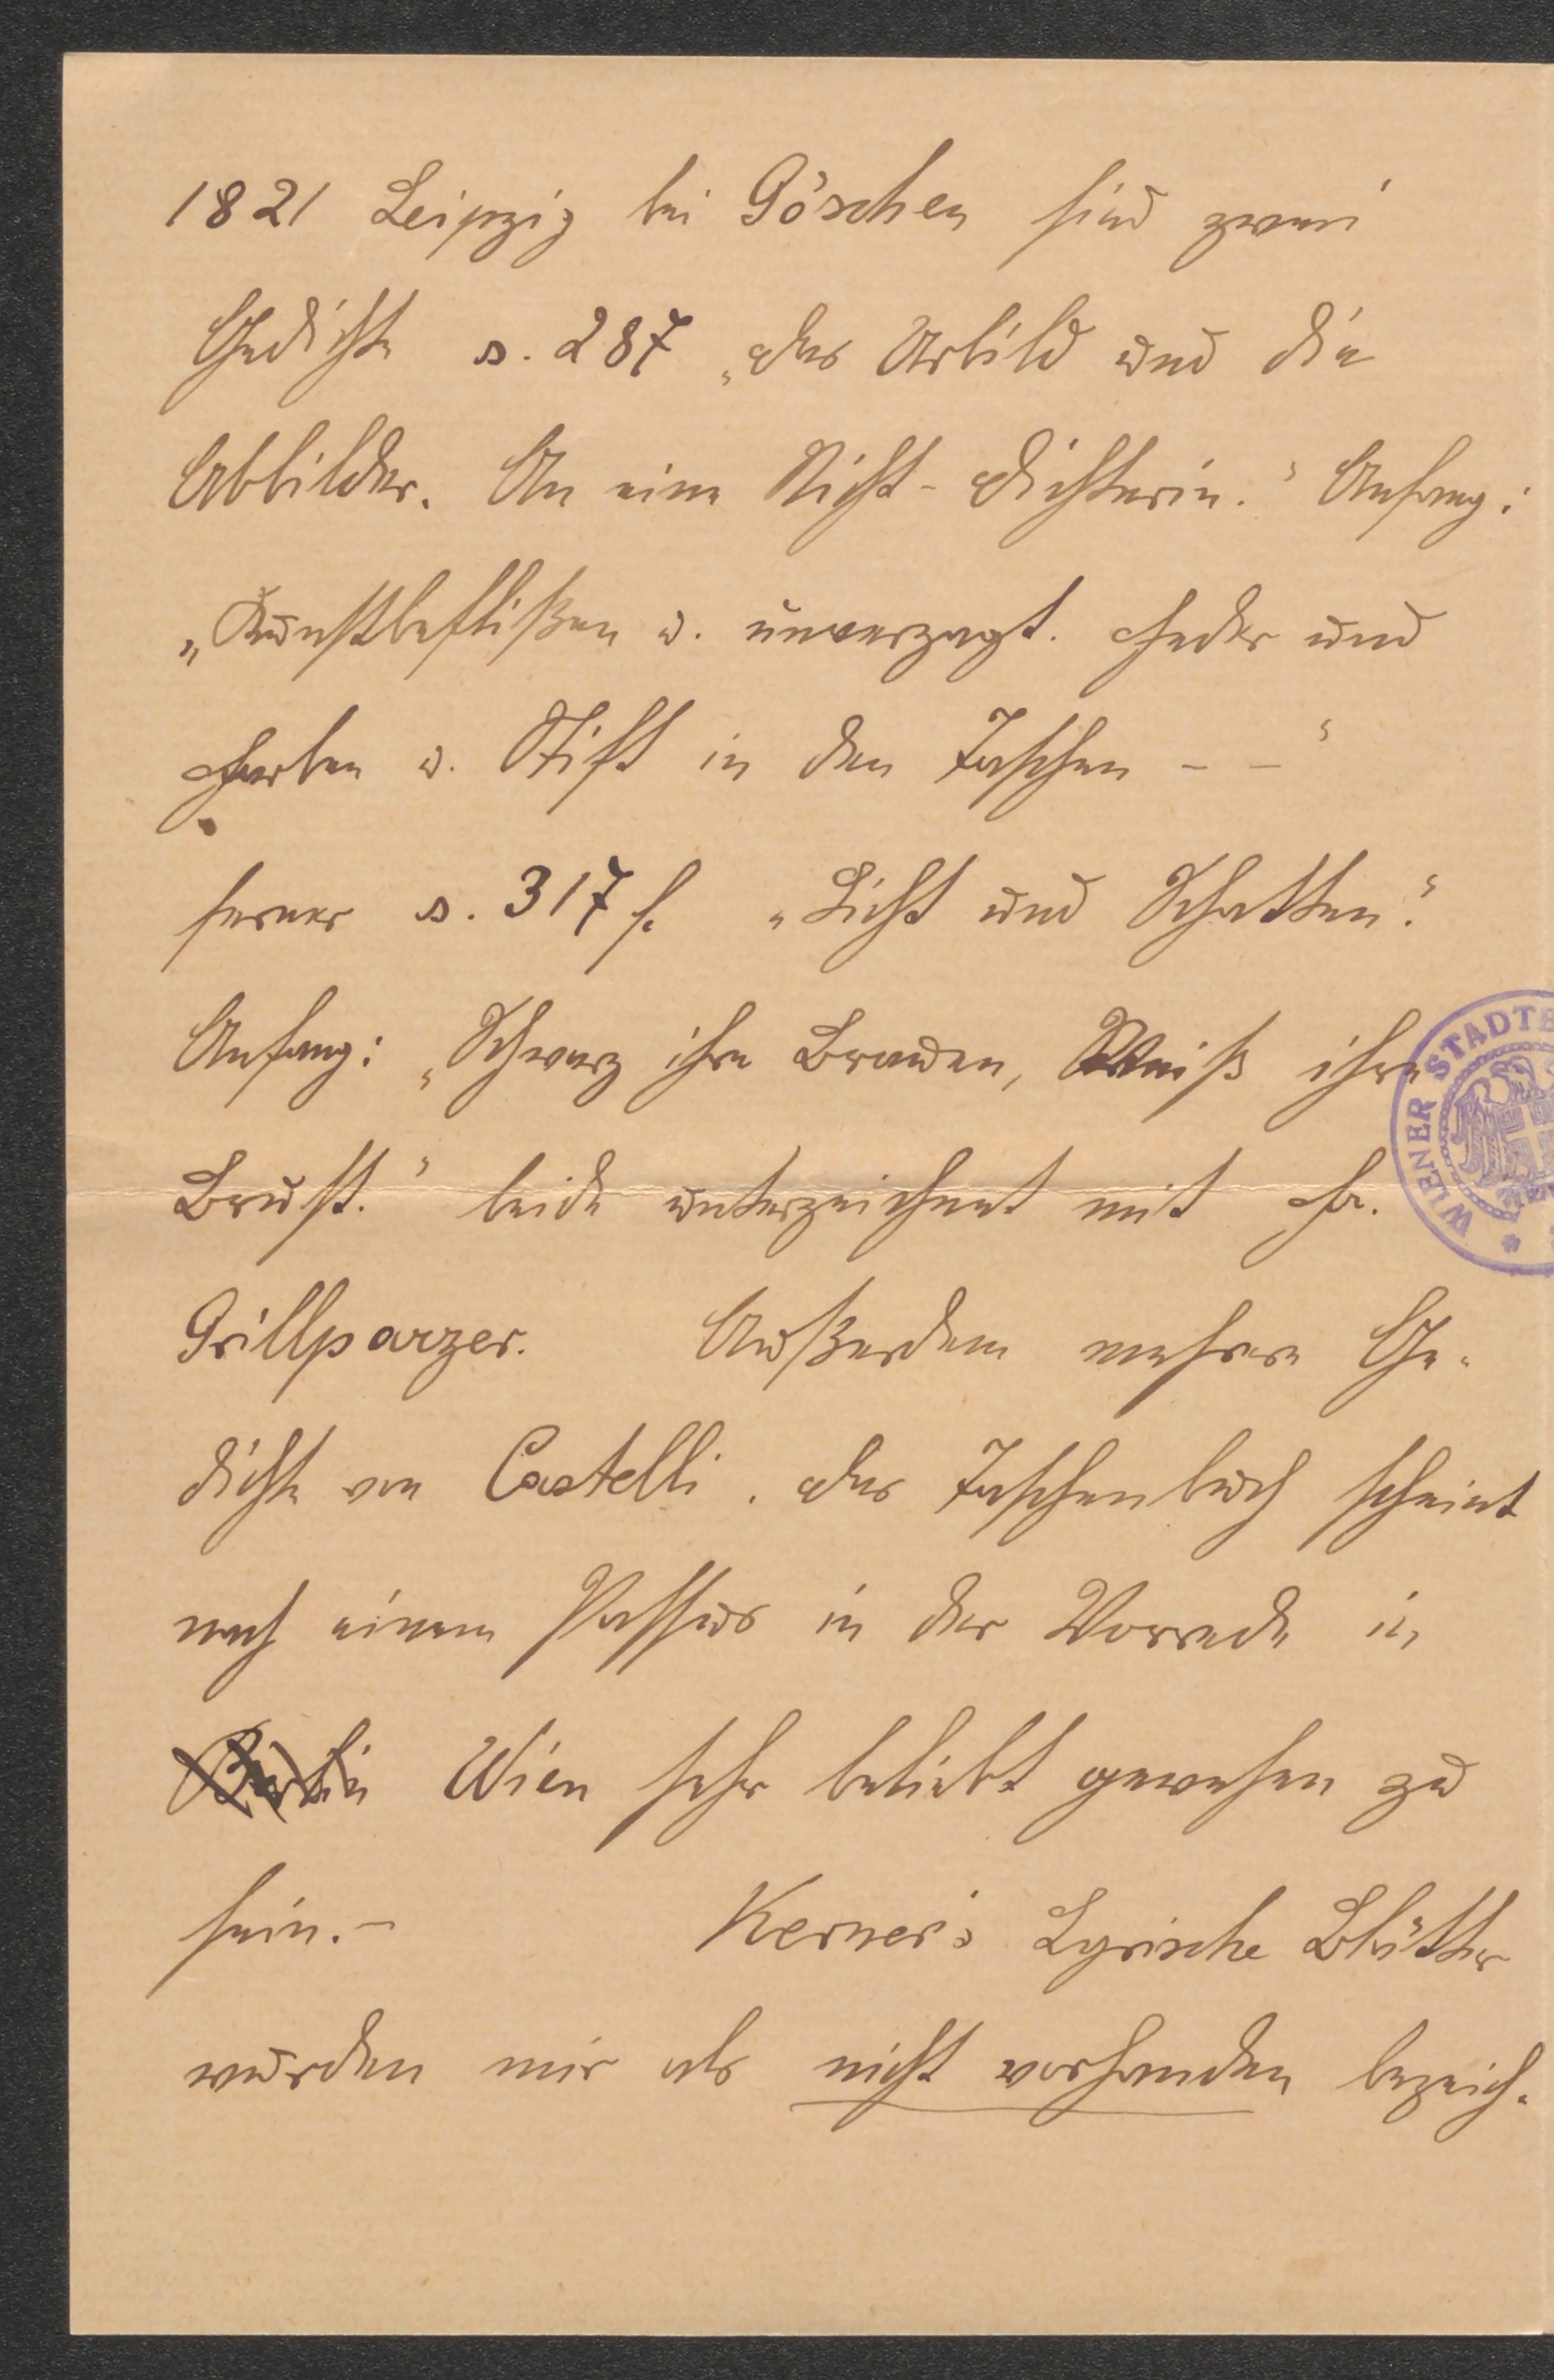 1821 Leipzig bei Göschen sind zwei
Gedichte s. 287 „Das Urbild und die
Abbilder. An eine Nicht-Dichterin.“ Anfang:
„Kunstbeflißen u. unverzagt. Feder und
Farben u. Stift in den Taschen – –“
ferner s. 317 f. „Licht und Schatten“.
Anfang: „Schwarz ihre Brauen, Weiß ihre
Brust.“ beide unterzeichnet mit Fr.
Grillparzer. Außerdem mehrere Ge-
dichte von Castelli. Das Taschenbuch scheint
nach einem Passus in der Vorrede in
Berlin Wien sehr beliebt gewesen zu
sein. – Kerner's Lyrische Blätter
wurden mir als nicht vorhanden bezeich-
WIENER STADTB